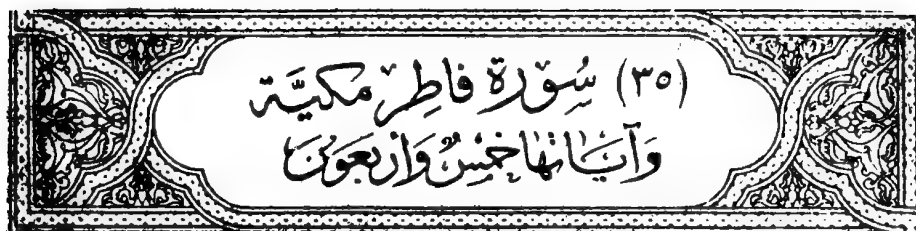 (٣٥) سُوْرَة فَاطِر مَكيَّة
وَآيَاتهَا خمسٌ وَأربَعُونَ